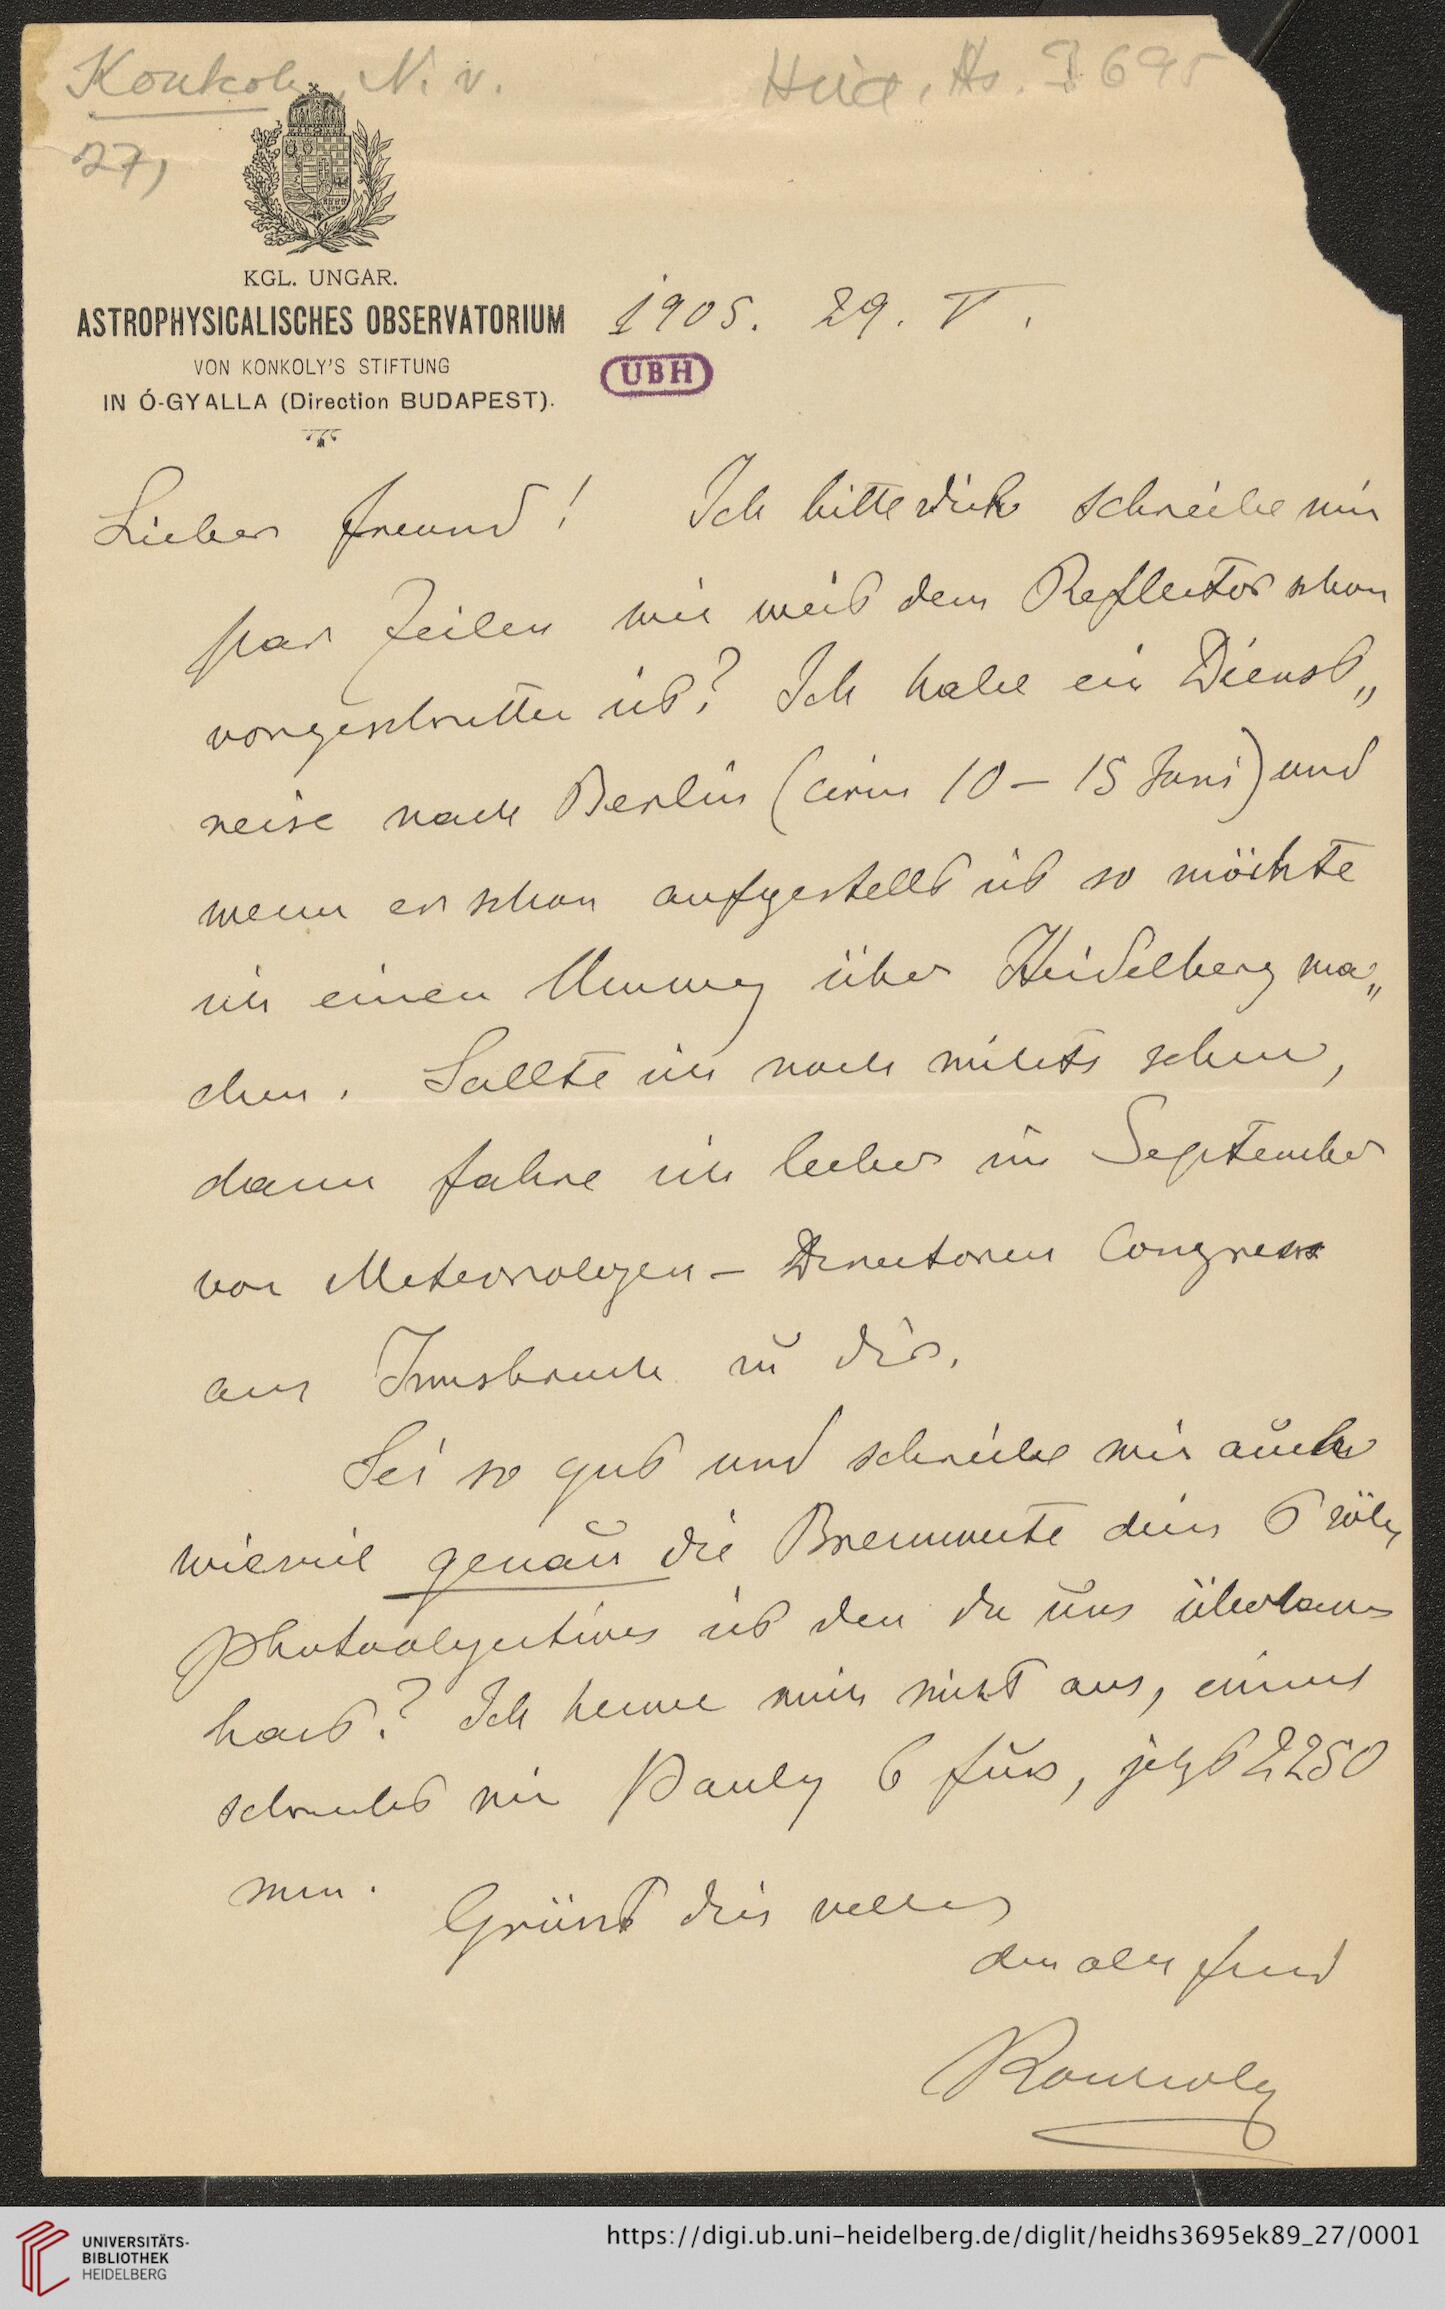 Konkoly, N. v.
Heid. Hs. 3695
27,
KGL. UNGAR.
ASTROPHYSICALISCHES OBSERVATORIUM
VON KONKOLY'S STIFTUNG
IN Ó-GYALLA (Direction BUDAPEST).
1905. 29. V.
UBH
Lieber Freund! Ich bitte dich schreibe mir
par Zeilen wie weit dein Reflector schon
vorgeschritten ist? Ich habe ein Dienst„
reise nach Berlin (circa 10 – 15 Juni) und
wenn er schon aufgestellt ist so möchte
ich einen Umweg über Heidelberg ma„
chen. Sollte ich noch nichts sehen,
dann fahre ich lieber im September
von Meteorologen – Directoren Congress
aus Innsbruck zu dir.
Sei so gut und schreibe mir auch
wieviel genau die Brennweite dein 6 zöly
Photoobjectives ist den du uns überlassen
hast? Ich kenne mich nicht aus, einmal
schreibt mir Pauly 6 fuss, jetzt 2250
mm.
Grüsst dich vielles
dein alter freund
Konkoly
UNIVERSITÄTS-
BIBLIOTHEK
HEIDELBERG
https://digi.ub.uni-heidelberg.de/diglit/heidhs3695ek89_27/0001